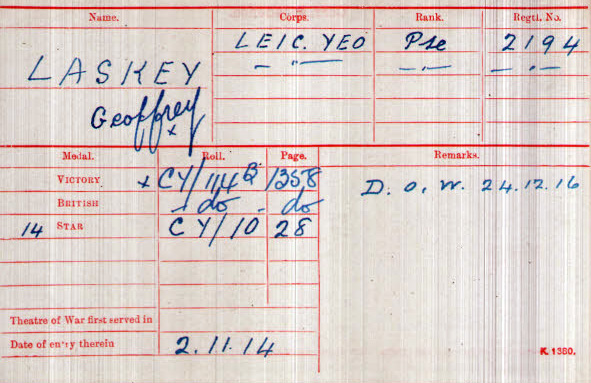 Name. Corps. Rank. Regtl. No.
LASKEY LEIC. YEO Pte 2194
— " — — " — — " —
Geoffrey
x
Medal. Roll. Page. Remarks.
VICTORY x CY/114B 1358 D. o. W. 24.12.16
BRITISH - do - do
14 STAR CY/10 28
Theatre of War first served in
Date of entry therein 2.11.14
K. 1380.